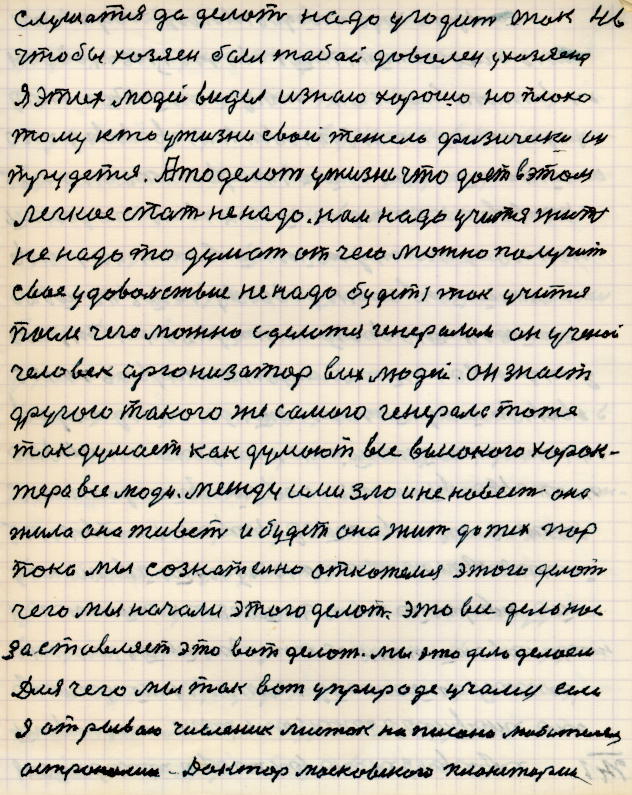 слушатся да делот надо угодит так 46
чтобы хозяен был табой доволен ухозяена
Я этих людей видел изнаю хорошо но плохо
тому кто ужизни своей тежело физически он
трудется. Ато делот ужизни что даст вэтом
легкое стат не надо. нам надо учится жит
не надо то думат от чего можно получит
свое удовольствие не надо будет так учится
после чего можно сделатся генералом он ученой
человек организатор вих людей. он знает
другого такого же самого генерала тоже
так думает как думают все высокого харак-
тера все люди. между ими зло и не навест она
жила она живет и будет она жит до тех пор
пока мы сознателно откажемся этого делат
чего мы начали этого делат. это все делоное
заставляет это вот делат. мы это дело делаем
Для чего мы так вот уприроде учаимся если
Я отрываю численик листок написано любителям
астрономии - Доктор московского планетария